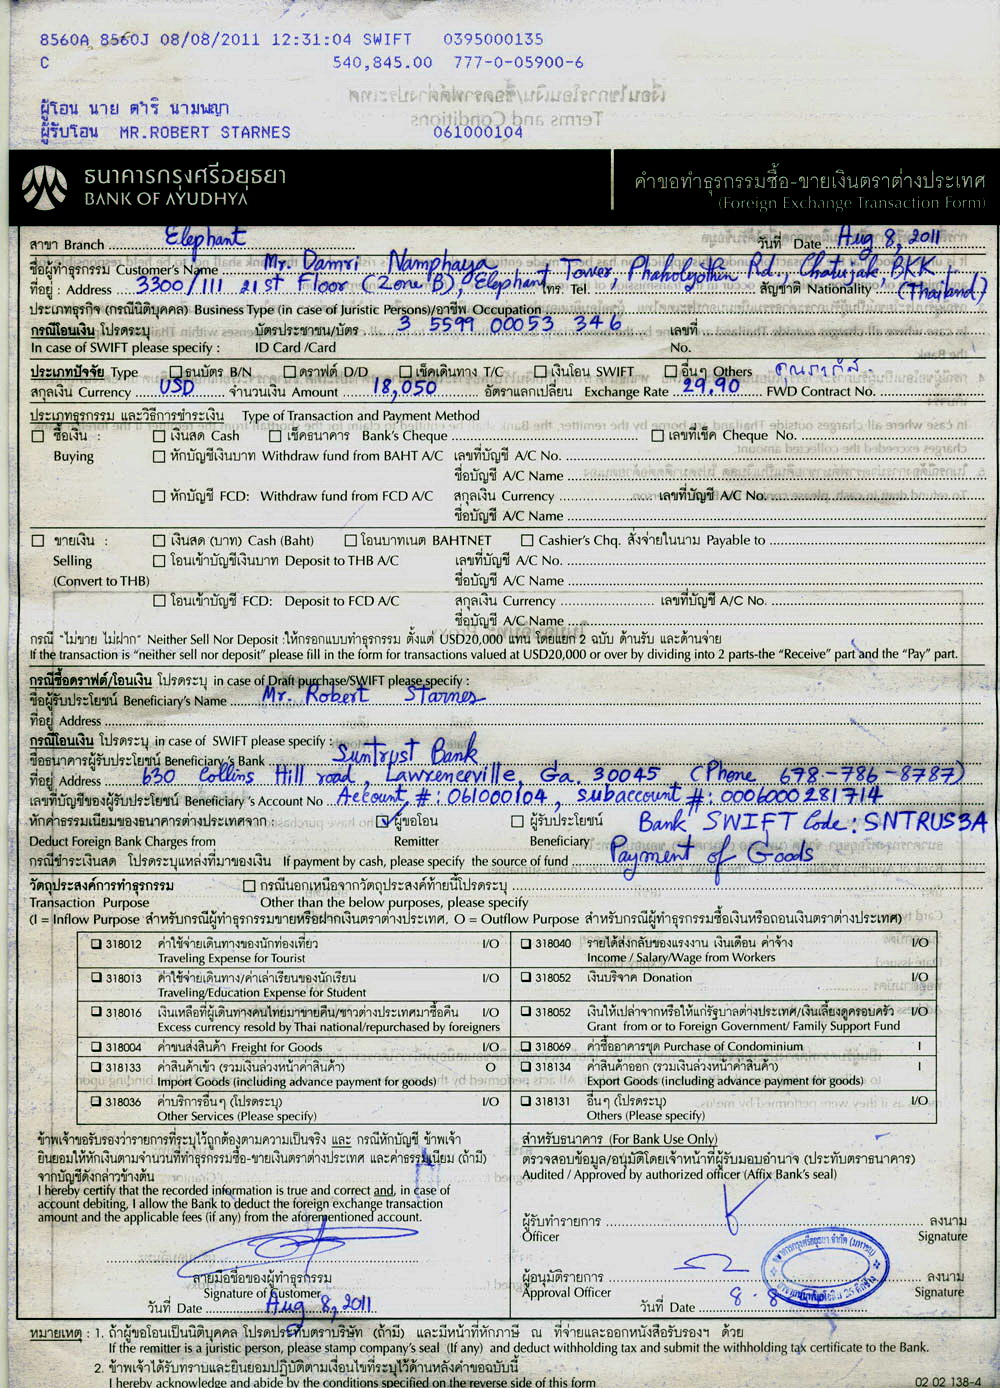 8560A 8560J 08/08/2011 12:31:04 SWIFT 0395000135
C 540,845.00 777-0-05900-6
ผู้โอน นาย ดำริ นามพญา
ผู้รับโอน MR.ROBERT STARNES 061000104
ธนาคารกรุงศรีอยุธยา
BANK OF AYUDHYA
คำขอทำธุรกรรมซื้อ-ขายเงินตราต่างประเทศ
(Foreign Exchange Transaction Form)
สาขา Branch Elephant วันที่ Date Aug 8, 2011
ชื่อผู้ทำธุรกรรม Customer's Name Mr. Damri Namphaya
ที่อยู่ : Address 3300/111 21st Floor (Zone B), Elephant Tower, Phaholyothin Rd., Chatujak, BKK โทร Tel สัญชาติ Nationality (Thailand)
ประเภทธุรกิจ (กรณีนิติบุคคล) Business Type (in case of Juristic Persons)/อาชีพ Occupation
กรณีโอนเงิน โปรดระบุ บัตรประชาชน/บัตร 3 5599 00053 346 เลขที่
In case of SWIFT please specify : ID Card /Card No.
ประเภทปัจจัย Type ธนบัตร B/N ดราฟต์ D/D เช็คเดินทาง T/C เงินโอน SWIFT อื่นๆ Others
สกุลเงิน Currency USD จำนวนเงิน Amount 18,050 อัตราแลกเปลี่ยน Exchange Rate 29.90 FWD Contract No.
ประเภทธุรกรรม และวิธีการชำระเงิน Type of Transaction and Payment Method
ซื้อเงิน : เงินสด Cash เช็คธนาคาร Bank's Cheque เลขที่เช็ค Cheque No.
Buying หักบัญชีเงินบาท Withdraw fund from BAHT A/C เลขที่บัญชี A/C No.
ชื่อบัญชี A/C Name
หักบัญชี FCD: Withdraw fund from FCD A/C สกุลเงิน Currency เลขที่บัญชี A/C No.
ชื่อบัญชี A/C Name
ขายเงิน : เงินสด (บาท) Cash (Baht) โอนบาทเนต BAHTNET Cashier's Chq. สั่งจ่ายในนาม Payable to
Selling โอนเข้าบัญชีเงินบาท Deposit to THB A/C เลขที่บัญชี A/C No.
(Convert to THB) ชื่อบัญชี A/C Name
โอนเข้าบัญชี FCD: Deposit to FCD A/C สกุลเงิน Currency เลขที่บัญชี A/C No.
ชื่อบัญชี A/C Name
กรณี "ไม่ขาย ไม่ฝาก" Neither Sell Nor Deposit :ให้กรอกแบบทำธุรกรรม ตั้งแต่ USD20,000 แทน โดยแยก 2 ฉบับ ด้านรับ และด้านจ่าย
If the transaction is "neither sell nor deposit" please fill in the form for transactions valued at USD20,000 or over by dividing into 2 parts-the "Receive" part and the "Pay" part.
กรณีซื้อดราฟต์/โอนเงิน โปรดระบุ in case of Draft purchase/SWIFT please specify :
ชื่อผู้รับประโยชน์ Beneficiary's Name Mr. Robert Starnes
ที่อยู่ Address
กรณีโอนเงิน โปรดระบุ in case of SWIFT please specify :
ชื่อธนาคารผู้รับประโยชน์ Beneficiary's Bank Suntrust Bank
ที่อยู่ Address 630 Collins Hill road, Lawrenceville, Ga. 30045 (Phone 678-786-8787)
เลขที่บัญชีของผู้รับประโยชน์ Beneficiary 's Account No Account #: 061000104, subaccount #: 0006000281714
หักค่าธรรมเนียมของธนาคารต่างประเทศจาก : ผู้ขอโอน ผู้รับประโยชน์ Bank SWIFT Code: SNTRUS3A
Deduct Foreign Bank Charges from Remitter Beneficiary
กรณีชำระเงินสด โปรดระบุแหล่งที่มาของเงิน If payment by cash, please specify the source of fund Payment of Goods
วัตถุประสงค์การทำธุรกรรม กรณีนอกเหนือจากวัตถุประสงค์ท้ายนี้โปรดระบุ
Transaction Purpose Other than the below purposes, please specify
(I = Inflow Purpose สำหรับกรณีผู้ทำธุรกรรมขายหรือฝากเงินตราต่างประเทศ, O = Outflow Purpose สำหรับกรณีผู้ทำธุรกรรมซื้อเงินหรือถอนเงินตราต่างประเทศ)
318012 ค่าใช้จ่ายเดินทางของนักท่องเที่ยว I/O 318040 รายได้ส่งกลับของแรงงาน เงินเดือน ค่าจ้าง I/O
Traveling Expense for Tourist Income / Salary/Wage from Workers
318013 ค่าใช้จ่ายเดินทาง/ค่าเล่าเรียนของนักเรียน I/O 318052 เงินบริจาค Donation I/O
Traveling/Education Expense for Student
318016 เงินเหลือที่ผู้เดินทางคนไทยมาขายคืน/ชาวต่างประเทศมาซื้อคืน I/O 318052 เงินให้เปล่าจากหรือให้แก่รัฐบาลต่างประเทศ/เงินเลี้ยงดูครอบครัว I/O
Excess currency resold by Thai national/repurchased by foreigners Grant from or to Foreign Government/ Family Support Fund
318004 ค่าขนส่งสินค้า Freight for Goods I/O 318069 ค่าซื้ออาคารชุด Purchase of Condominium I
318133 ค่าสินค้าเข้า (รวมเงินล่วงหน้าค่าสินค้า) O 318134 ค่าสินค้าออก (รวมเงินล่วงหน้าค่าสินค้า) I
Import Goods (including advance payment for goods) Export Goods (including advance payment for goods)
318036 ค่าบริการอื่นๆ (โปรดระบุ) I/O 318131 อื่นๆ (โปรดระบุ) I/O
Other Services (Please specify) Others (Please specify)
ข้าพเจ้าขอรับรองว่ารายการที่ระบุไว้ถูกต้องตามความเป็นจริง และ กรณีหักบัญชี ข้าพเจ้า
ยินยอมให้หักเงินตามจำนวนที่ทำธุรกรรมซื้อ-ขายเงินตราต่างประเทศ และค่าธรรมเนียม (ถ้ามี)
จากบัญชีดังกล่าวข้างต้น
I hereby certify that the recorded information is true and correct and, in case of
account debiting, I allow the Bank to deduct the foreign exchange transaction
amount and the applicable fees (if any) from the aforementioned account.
ลายมือชื่อของผู้ทำธุรกรรม
Signature of Customer
วันที่ Date Aug 8, 2011
สำหรับธนาคาร (For Bank Use Only)
ตรวจสอบข้อมูล/อนุมัติโดยเจ้าหน้าที่ผู้รับมอบอำนาจ (ประทับตราธนาคาร)
Audited / Approved by authorized officer (Affix Bank's seal)
ผู้รับทำรายการ ลงนาม
Officer Signature
ผู้อนุมัติรายการ ลงนาม
Approval Officer Signature
วันที่ Date 8 . 8
หมายเหตุ : 1. ถ้าผู้ขอโอนเป็นนิติบุคคล โปรดประทับตราบริษัท (ถ้ามี) และมีหน้าที่หักภาษี ณ ที่จ่ายและออกหนังสือรับรองฯ ด้วย
If the remitter is a juristic person, please stamp company's seal (If any) and deduct withholding tax and submit the withholding tax certificate to the Bank.
2. ข้าพเจ้าได้รับทราบและยินยอมปฏิบัติตามเงื่อนไขที่ระบุไว้ด้านหลังคำขอฉบับนี้
I hereby acknowledge and abide by the conditions specified on the reverse side of this form 02 02 138-4